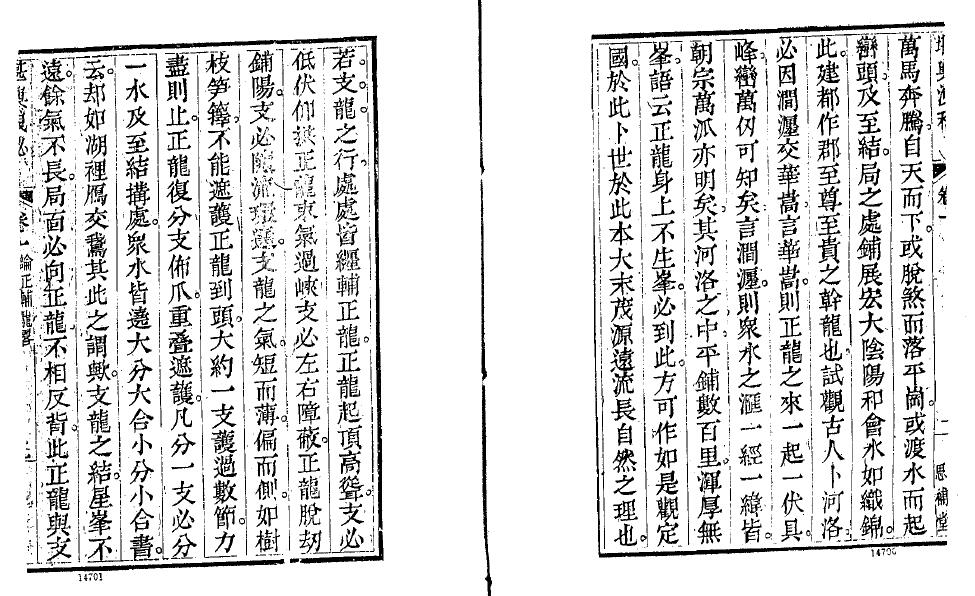 萬馬奔騰自天而下。或脫煞而落平崗或渡水而起
巒頭及至結局之處鋪展宏大陰陽和會水如織錦。
此建郡作郡至尊至貴之幹龍也試觀古人卜河洛
必因澗瀍交華嵩言華嵩則正龍之來一起一伏具。
峰巒萬仞可知矣言澗瀍則衆水之滙一經一緯皆
朝宗萬派亦明矣其河洛之中平鋪數百里渾厚無
峯語云正龍身上不生峯必到此方可作如是觀定
國於此卜世於此本大末茂源遠流長自然之理也。
卷一
思補堂
14700
若支龍之行處處皆纒輔正龍。正龍起頂高聳支必
低伏仰拱正龍束氣過峽支必左右障蔽。正龍脫刼
鋪陽。支必隨流環遶支龍之氣短而薄偏而側。如樹
枝笋籜。不能遮護正龍到頭大約一支護過數節。力
盡則止正龍復分支佈爪。重叠遮護。凡分一支必分
一水及至結搆處。衆水皆遶大分大合小分小合書。
云却如湖裡鴈交鵞其此之謂歟支龍之結星峯不
遠餘氣不長局面必向正龍不相反背此正龍與支
卷一 論正輔龍
14701